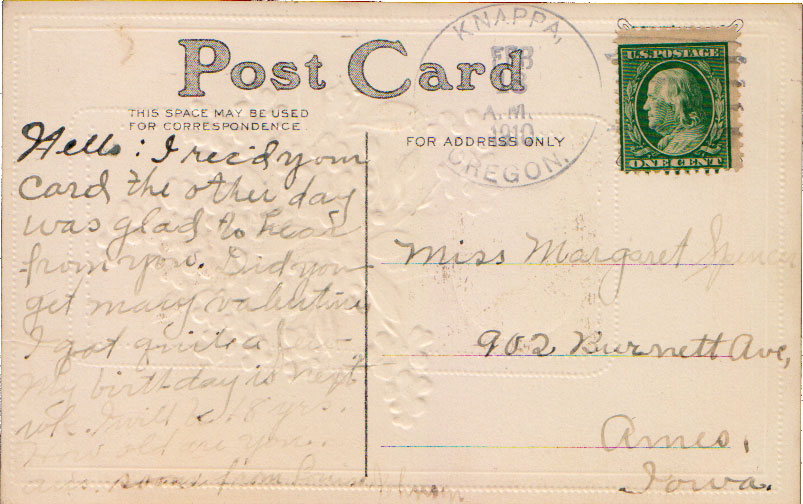 Post Card
THIS SPACE MAY BE USED
FOR CORRESPONDENCE
Hello: I rec'd your
card the other day
was glad to hear
from you. Did you
get many valentine
I got quite a few
My birthday is next
wk. I will be 18 yrs.
How old are you.
soon from
KNAPPA,
FEB
A.M.
1910
OREGON.
U.S. POSTAGE
ONE CENT
FOR ADDRESS ONLY
Miss Margaret Spencer
902 Burnett Ave,
Ames,
Iowa.